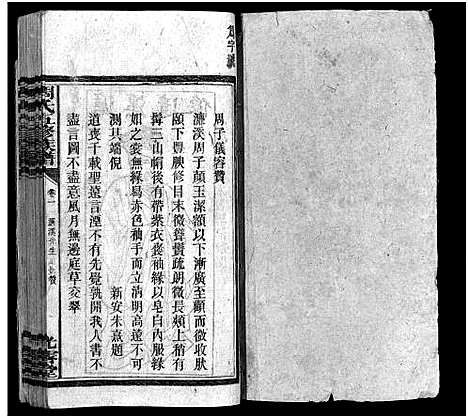 周子儀容贊
濂溪周子顏玉潔額以下漸廣至顴而微收肰
頤下豐腴修目末微聳鬢疏朗微長頰上稍有
髯三山帽後有帶紫衣褒袖緣以皂白內服緣
如之裳無緣舄赤色袖手而立清明高遠不可
測其端倪
新安朱熹題
道喪千載聖遠言湮不有先覺孰開我人書不
盡言圖不盡意風月無邊庭草交翠
周氏五修族譜
卷一
濂溪先生
贊